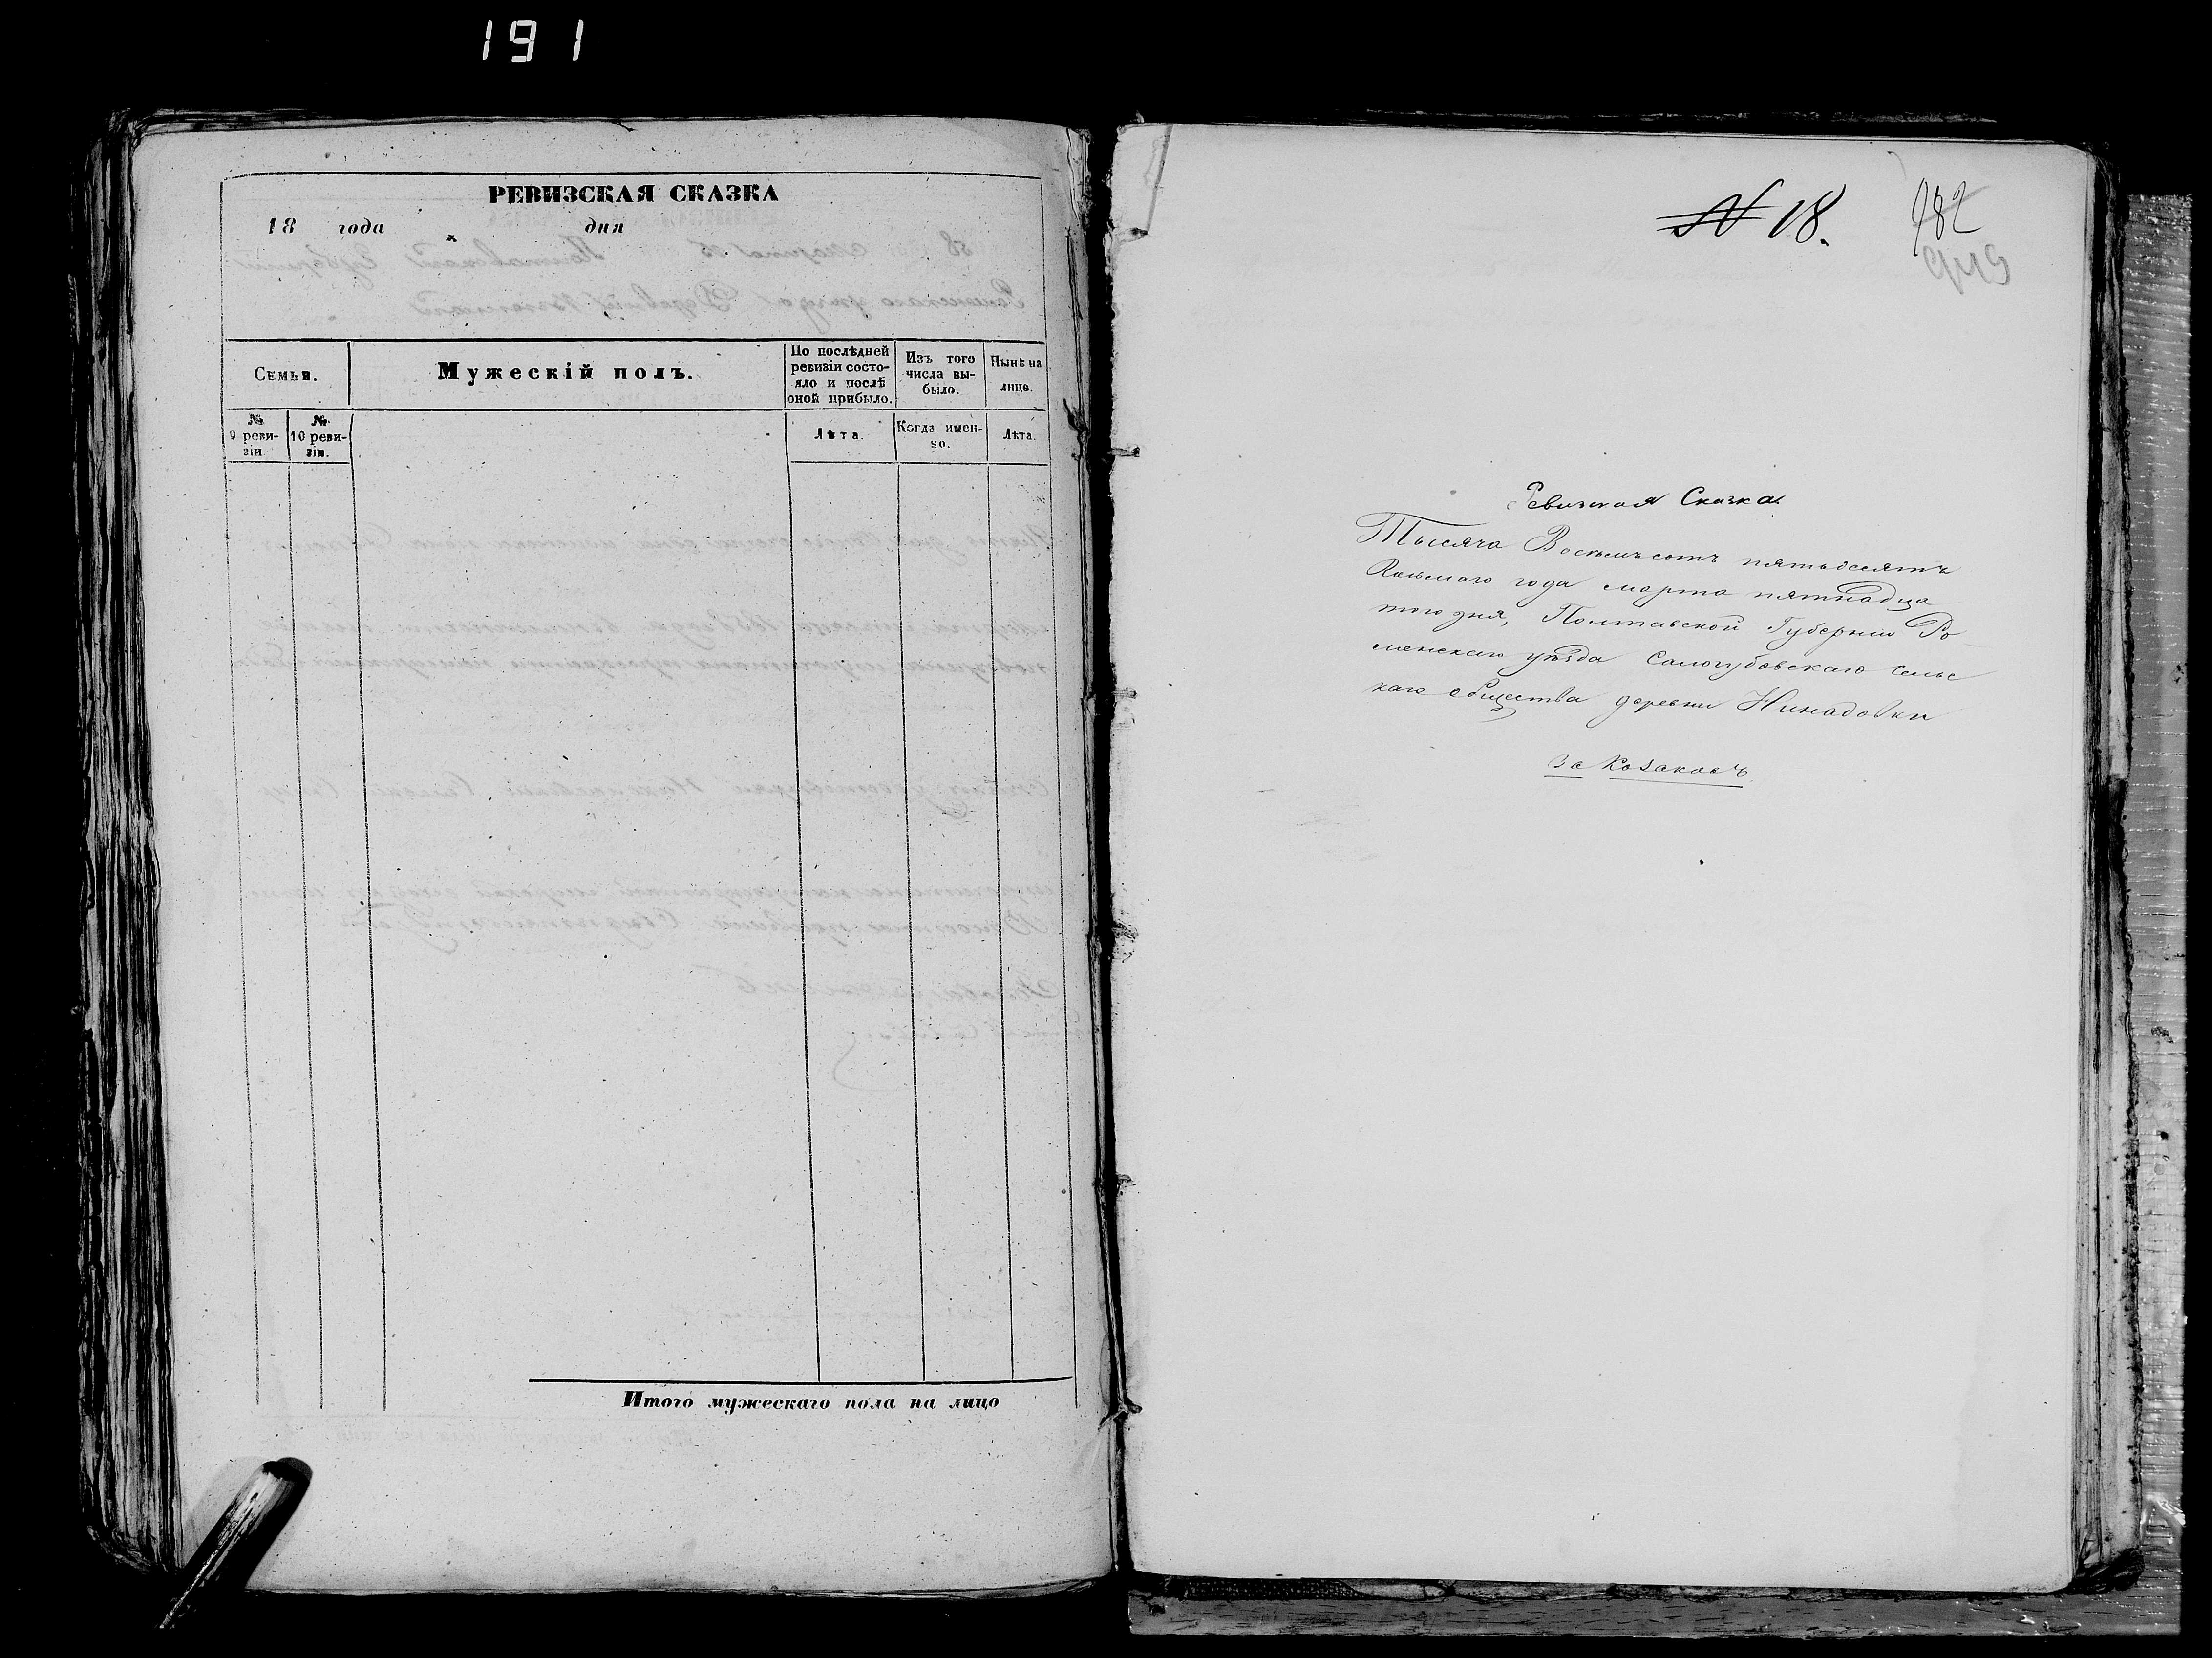 191
РЕВИЗСКАЯ СКАЗКА
18 года дня
Семьи.
Мужескій полъ.
По послѣдней ревизіи состояло и послѣ оной прибыло.
Изъ того числа выбыло.
Нынѣ на лицо.
№ 9 ревизіи.
№ 10 ревизіи.
Лѣта.
Когда именно.
Лѣта.
Итого мужескаго пола на лицо
N 18.
982
Ревизская Сказка
Тысяча Восемьсотъ пятьдесятъ
Восьмаго года марта пятнадца
таго дня, Полтавской Губерніи Ро
менскаго уѣзда Сологубовскаго Сельс
каго общества деревни
За Козаковъ